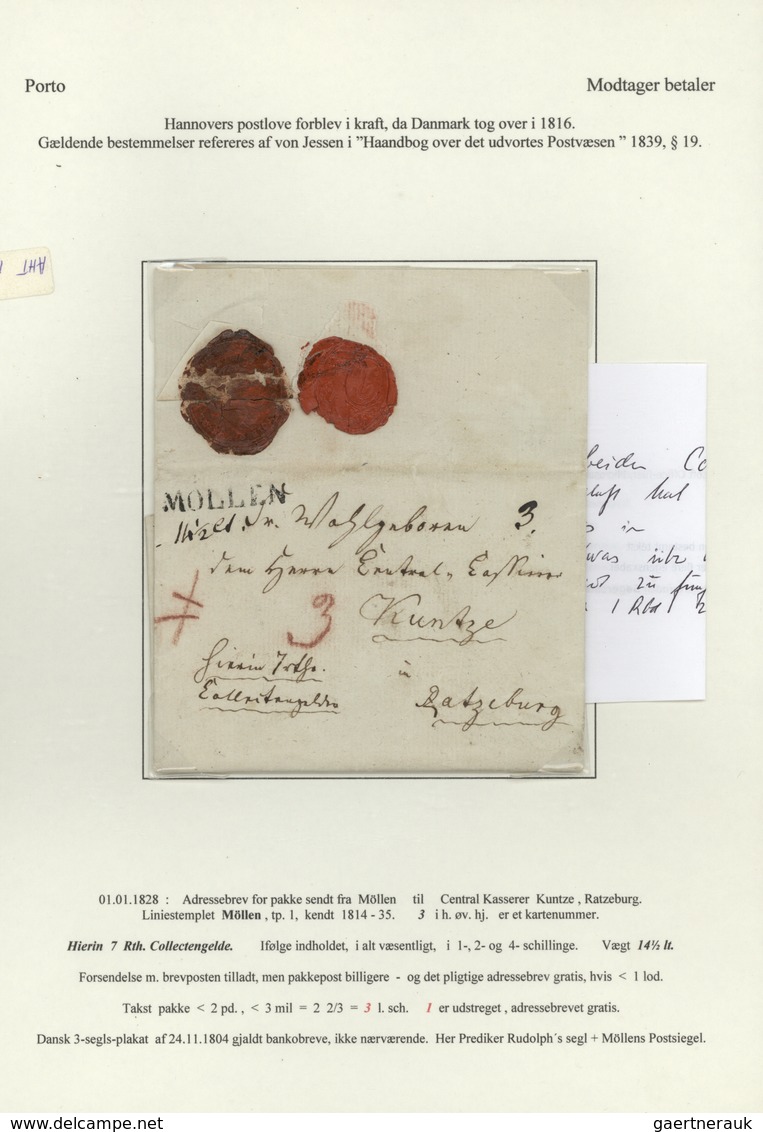 Porto Modtager betaler
Hannovers postlove forblev i kraft, da Danmark tog over i 1816.
Gældende bestemmelser refereres af von Jessen i ”Haandbog over det udvortes Postvæsen ” 1839, § 19.
AHT
MÖLLEN
Sr. Wohlgeboren 3.
dem Herrn Central-Cassirer
3 Kuntze
Hierin 7 rth. in
Collectengelder Ratzeburg
beiden
hat
in
was
zu
1 Rbd
01.01.1828 : Adressebrev for pakke sendt fra Möllen til Central Kasserer Kuntze , Ratzeburg.
Liniestemplet Möllen , tp. 1, kendt 1814 - 35. 3 i h. øv. hj. er et kartenummer.
Hierin 7 Rth. Collectengelde. Ifølge indholdet, i alt væsentligt, i 1-, 2- og 4- schillinge. Vægt 14½ lt.
Forsendelse m. brevposten tilladt, men pakkepost billigere - og det pligtige adressebrev gratis, hvis < 1 lod.
Takst pakke < 2 pd. , < 3 mil = 2 2/3 = 3 l. sch. 1 er udstreget , adressebrevet gratis.
Dansk 3-segls-plakat af 24.11.1804 gjaldt bankobreve, ikke nærværende. Her Prediker Rudolph´s segl + Möllens Postsiegel.
www.delcampe.net gaertnerauk